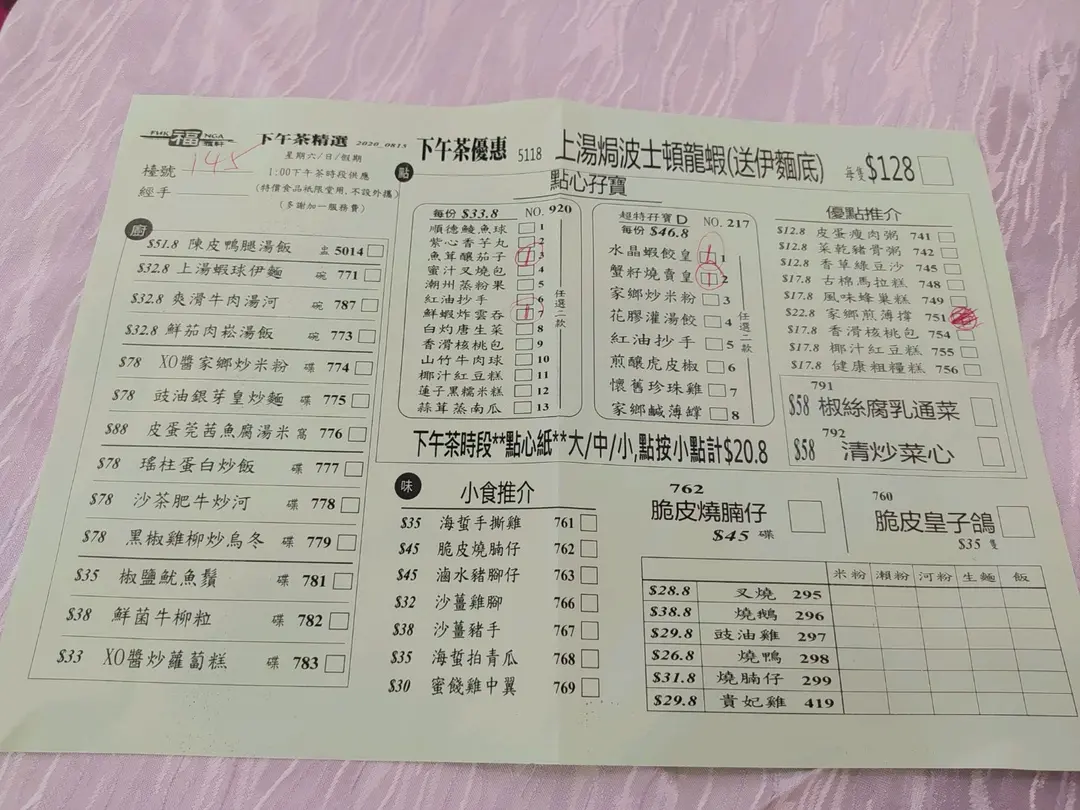 FHK 福 NGA
雅軒
下午茶精選 2020_0815
星期六/日/假期
1:00下午茶時段供應
(特價食品祇限堂用,不設外攜)
(多謝加一服務費)
檯號 145
經手
廚
$51.8 陳皮鴨腿湯飯 盅 5014
$32.8 上湯蝦球伊麵 碗 771
$32.8 爽滑牛肉湯河 碗 787
$32.8 鮮茄肉崧湯飯 碗 773
$78 XO醬家鄉炒米粉 碟 774
$78 豉油銀芽皇炒麵 碟 775
$88 皮蛋莞茜魚腐湯米 窩 776
$78 瑤柱蛋白炒飯 碟 777
$78 沙茶肥牛炒河 碟 778
$78 黑椒雞柳炒烏冬 碟 779
$35 椒鹽魷魚鬚 碟 781
$38 鮮菌牛柳粒 碟 782
$33 XO醬炒蘿蔔糕 碟 783
下午茶優惠 5118 上湯焗波士頓龍蝦(送伊麵底) 每隻 $128
點
點心孖寶
每份 $33.8 NO. 920
順德鯪魚球 1
紫心香芋丸 2
魚茸釀茄子 3
蜜汁叉燒包 4
潮州蒸粉果 5
紅油抄手 6
鮮蝦炸雲吞 7
白灼唐生菜 8
香滑核桃包 9
山竹牛肉球 10
椰汁紅豆糕 11
蓮子黑糯米糕 12
蒜茸蒸南瓜 13
任選二款
超特孖寶 D NO. 217
每份 $46.8
水晶蝦餃皇 1
蟹籽燒賣皇 2
家鄉炒米粉 3
花膠灌湯餃 4
紅油抄手 5
煎釀虎皮椒 6
懷舊珍珠雞 7
家鄉鹹薄罉 8
任選二款
優點推介
$12.8 皮蛋瘦肉粥 741
$12.8 菜乾豬骨粥 742
$12.8 香草綠豆沙 745
$17.8 古棉馬拉糕 748
$17.8 風味蜂巢糕 749
$22.8 家鄉煎薄撐 751
$17.8 香滑核桃包 754
$17.8 椰汁紅豆糕 755
$17.8 健康粗糧糕 756
791
$58 椒絲腐乳通菜
792
$58 清炒菜心
下午茶時段**點心紙**大/中/小,點按小點計$20.8
味
小食推介
$35 海蜇手撕雞 761
$45 脆皮燒腩仔 762
$45 滷水豬腳仔 763
$32 沙薑雞腳 766
$38 沙薑豬手 767
$35 海蜇拍青瓜 768
$30 蜜餞雞中翼 769
762
脆皮燒腩仔
$45 碟
760
脆皮皇子鴿
$35 隻
米粉 瀨粉 河粉 生麵 飯
$28.8 叉燒 295
$38.8 燒鵝 296
$29.8 豉油雞 297
$26.8 燒鴨 298
$31.8 燒腩仔 299
$29.8 貴妃雞 419